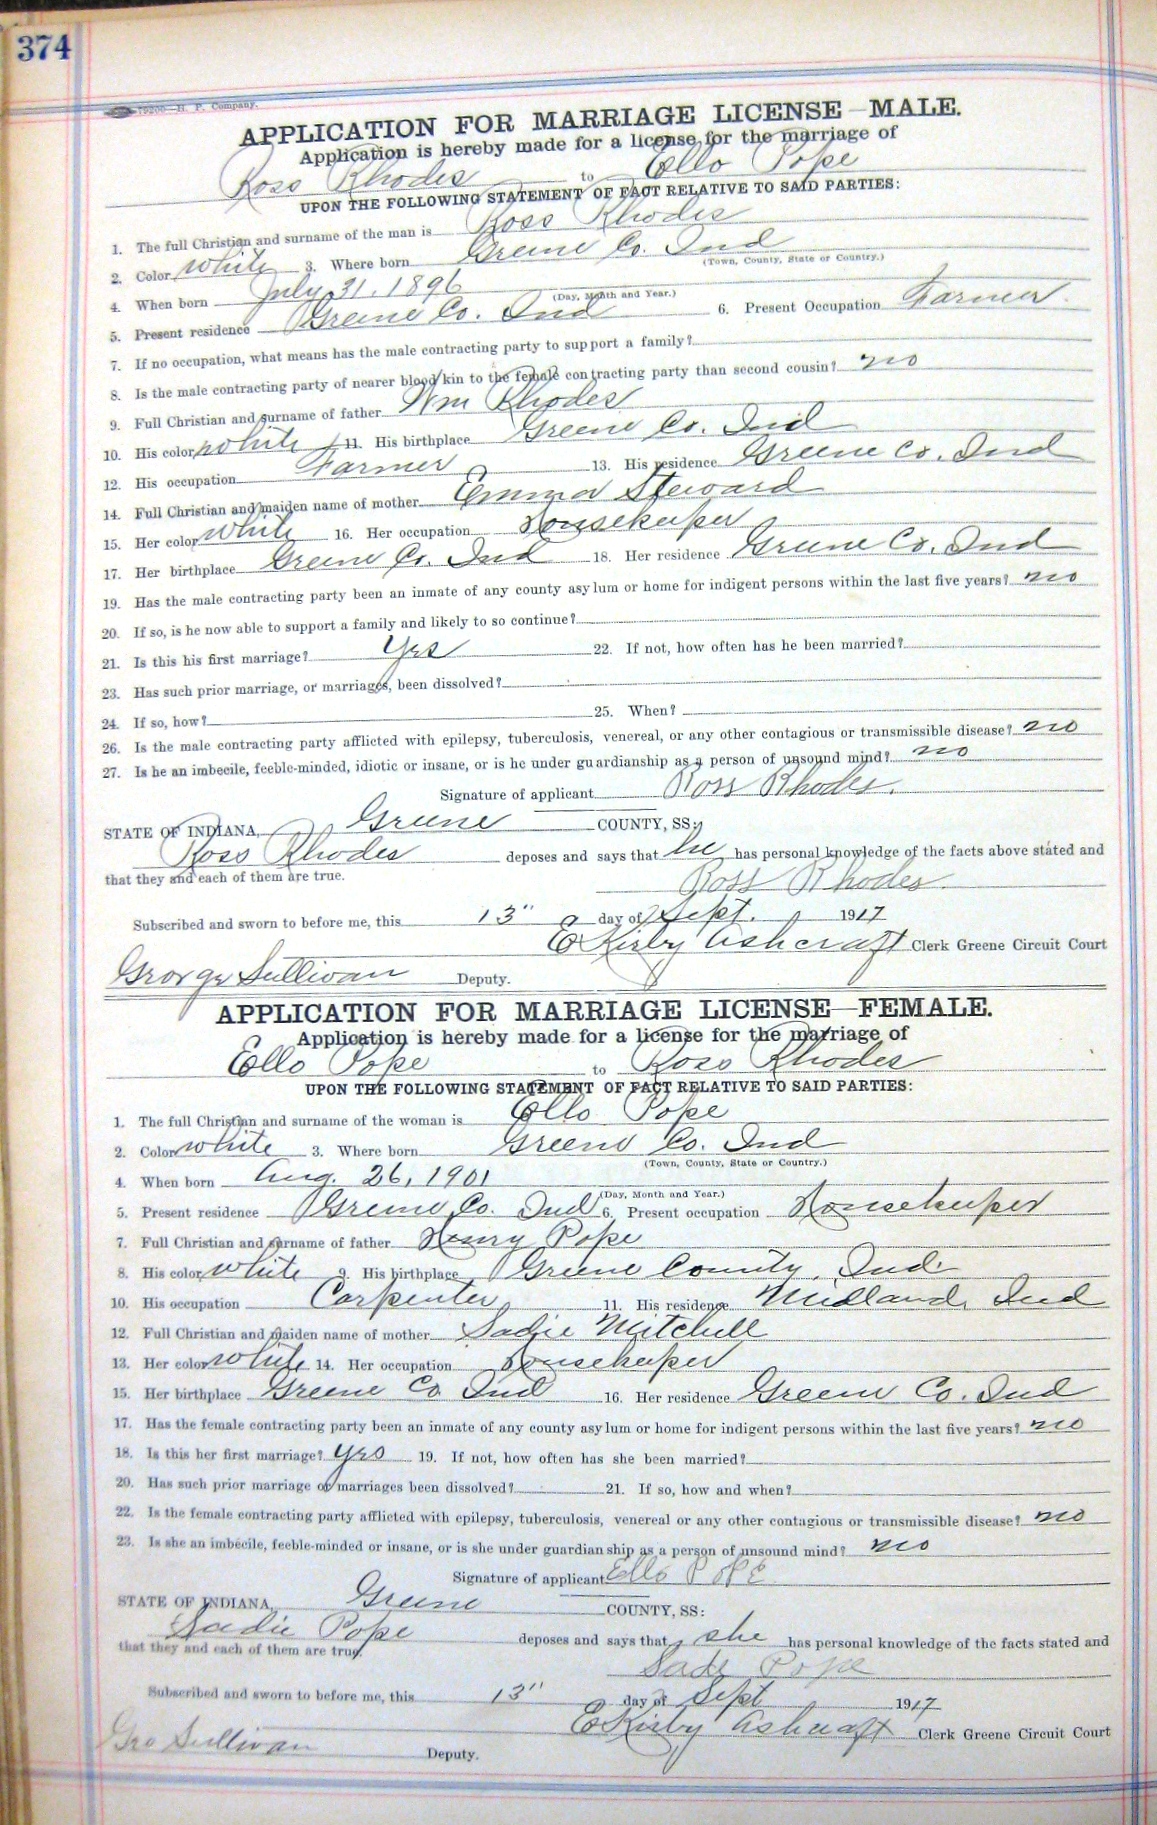 374
79200—H. P. Company.
APPLICATION FOR MARRIAGE LICENSE—MALE.
Application is hereby made for a license for the marriage of
Ross Rhodes to Ello Pope
UPON THE FOLLOWING STATEMENT OF FACT RELATIVE TO SAID PARTIES:
1. The full Christian and surname of the man is Ross Rhodes
2. Color white 3. Where born Greene Co. Ind
(Town, County, State or Country.)
4. When born July 31, 1896
(Day, Month and Year.)
5. Present residence Greene Co. Ind 6. Present Occupation Farmer.
7. If no occupation, what means has the male contracting party to support a family?
8. Is the male contracting party of nearer blood kin to the female contracting party than second cousin? no
9. Full Christian and surname of father Wm Rhodes
10. His color white 11. His birthplace Greene Co. Ind
12. His occupation Farmer 13. His residence Greene Co. Ind
14. Full Christian and maiden name of mother Emma Steward
15. Her color white 16. Her occupation Housekeeper
17. Her birthplace Greene Co. Ind 18. Her residence Greene Co. Ind
19. Has the male contracting party been an inmate of any county asylum or home for indigent persons within the last five years? no
20. If so, is he now able to support a family and likely to so continue?
21. Is this his first marriage? Yes 22. If not, how often has he been married?
23. Has such prior marriage, or marriages, been dissolved?
24. If so, how? 25. When?
26. Is the male contracting party afflicted with epilepsy, tuberculosis, venereal, or any other contagious or transmissible disease? no
27. Is he an imbecile, feeble-minded, idiotic or insane, or is he under guardianship as a person of unsound mind? no
Signature of applicant Ross Rhodes.
STATE OF INDIANA, Greene COUNTY, SS:
Ross Rhodes deposes and says that he has personal knowledge of the facts above stated and
that they and each of them are true.
Ross Rhodes.
Subscribed and sworn to before me, this 13" day of Sept. 1917
E Kirby Ashcraft Clerk Greene Circuit Court
George Sullivan Deputy.
APPLICATION FOR MARRIAGE LICENSE—FEMALE.
Application is hereby made for a license for the marriage of
Ello Pope to Ross Rhodes
UPON THE FOLLOWING STATEMENT OF FACT RELATIVE TO SAID PARTIES:
1. The full Christian and surname of the woman is Ello Pope
2. Color white 3. Where born Greene Co. Ind
(Town, County, State or Country.)
4. When born Aug. 26, 1901
(Day, Month and Year.)
5. Present residence Greene Co. Ind 6. Present occupation Housekeeper
7. Full Christian and surname of father Henry Pope
8. His color white 9. His birthplace Greene County, Ind.
10. His occupation Carpenter 11. His residence Midland, Ind
12. Full Christian and maiden name of mother Sadie Mitchell
13. Her color white 14. Her occupation Housekeeper
15. Her birthplace Greene Co Ind 16. Her residence Greene Co. Ind
17. Has the female contracting party been an inmate of any county asylum or home for indigent persons within the last five years? no
18. Is this her first marriage? yes 19. If not, how often has she been married?
20. Has such prior marriage or marriages been dissolved? 21. If so, how and when?
22. Is the female contracting party afflicted with epilepsy, tuberculosis, venereal or any other contagious or transmissible disease? no
23. Is she an imbecile, feeble-minded or insane, or is she under guardianship as a person of unsound mind? no
Signature of applicant Ello POPE
STATE OF INDIANA, Greene COUNTY, SS:
Sadie Pope deposes and says that she has personal knowledge of the facts stated and
that they and each of them are true.
Sade Pope
Subscribed and sworn to before me, this 13" day of Sept 1917
E Kirby Ashcraft Clerk Greene Circuit Court
Geo Sullivan Deputy.